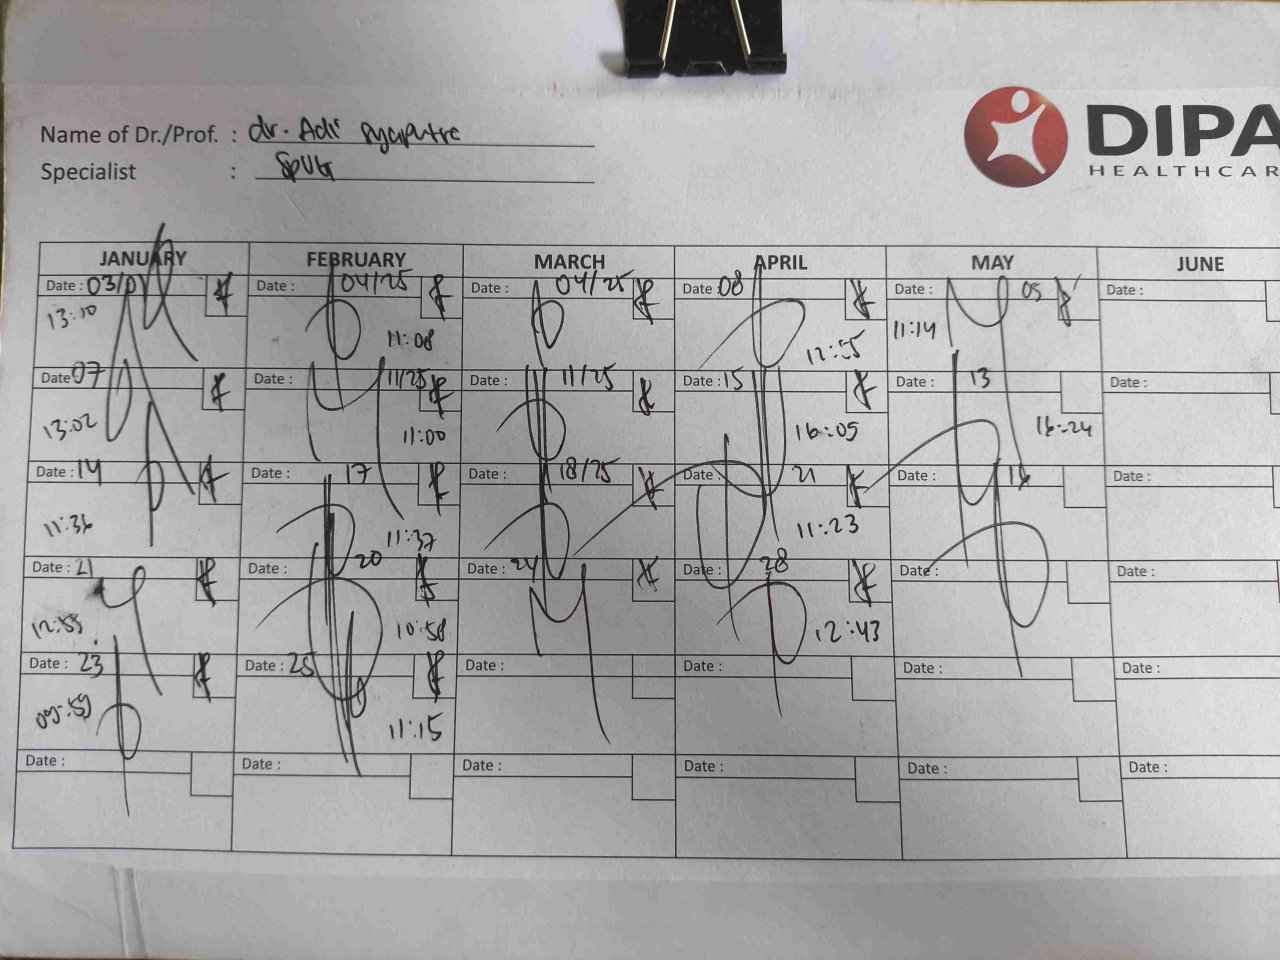 DIPA
HEALTHCAR
Name of Dr./Prof. : dr. Adi
Specialist :
JANUARY FEBRUARY MARCH APRIL MAY JUNE
Date : 03/01 Date : 04/25 Date : 04/25 Date : 08 Date : 05 Date :
13:10 11:08 12:55 11:14
Date : 07 Date : 11/25 Date : 11/25 Date : 15 Date : 13 Date :
13:02 11:00 16:05 16:24
Date : 14 Date : 17 Date : 18/25 Date : 21 Date : Date :
11:36 11:37 11:23
Date : 21 Date : 20 Date : 24 Date : 28 Date : Date :
12:55 10:58 12:43
Date : 23 Date : 25 Date : Date : Date : Date :
09:59 11:15
Date : Date : Date : Date : Date : Date :